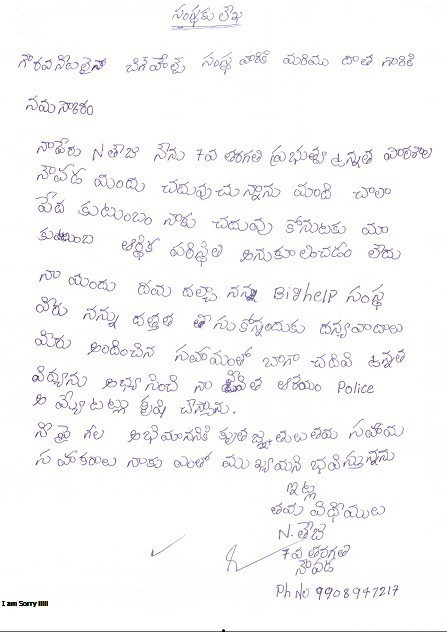 సంస్థకు లేఖ
గౌరవనీయులైన బిగ్‌హెల్ప్ సంస్థ వారికి మరియు దాత గారికి
నమస్కారం
నాపేరు N తౌజి నేను 7వ తరగతి ప్రభుత్వ ఉన్నత పాఠశాల
నౌపడ యందు చదువుచున్నాను మంది చాలా
పేద కుటుంబం నాకు చదువు కోనుటకు మా
కుటుంబ ఆర్థిక పరిస్థితి అనుకూలించడం లేదు
నా యందు దయ దల్చి నన్ను Bighelp సంస్థ
వారు నన్ను దత్తత తీసుకోన్నందుకు దన్యవాదాలు
మీరు అందించిన సహాయంతో బాగా చదివి ఉన్నత
విద్యను అభ్యసించి నా జీవిత ఆశయం Police
అవ్వేటట్లు కృషి చేస్తాను.
నా పై గల అభిమానానికి కృతజ్ఞతలు తమ సహాయ
సహకారాలు నాకు ఎంతో ముఖ్యమని భావిస్తున్నాను
ఇట్లు
తమ విధేయులు
N. తౌజి
7వ తరగతి
నౌపడ
Ph No 9908947217
I am Sorry !!!!!